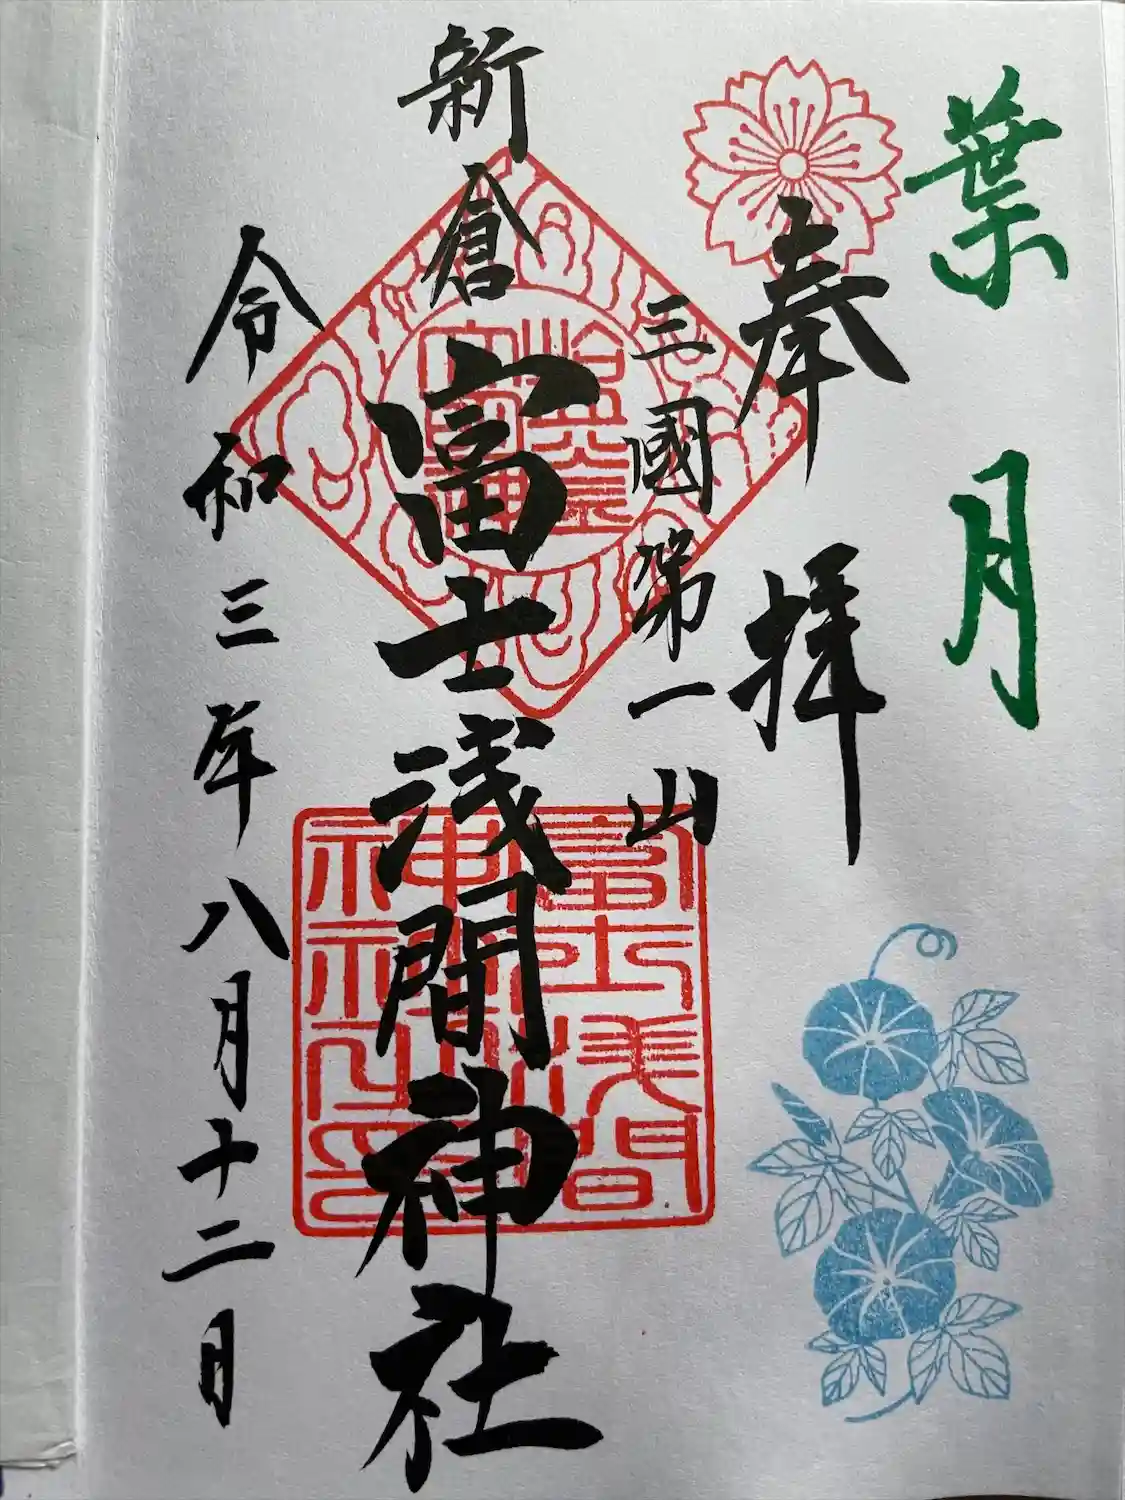 葉月
奉拝
三國第一山
新倉富士浅間神社
令和三年八月十二日
富士浅間
神社